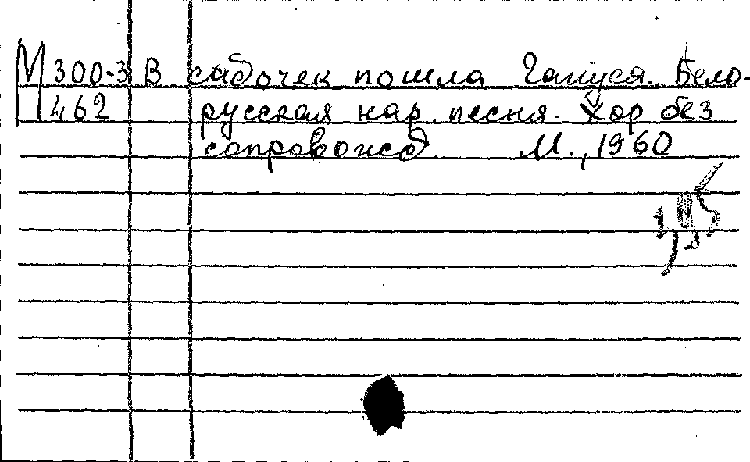 М 300-3 В садочек пошла Гануся. Бело-
462 русская нар. песня. Хор без
сопровожд. М., 1960